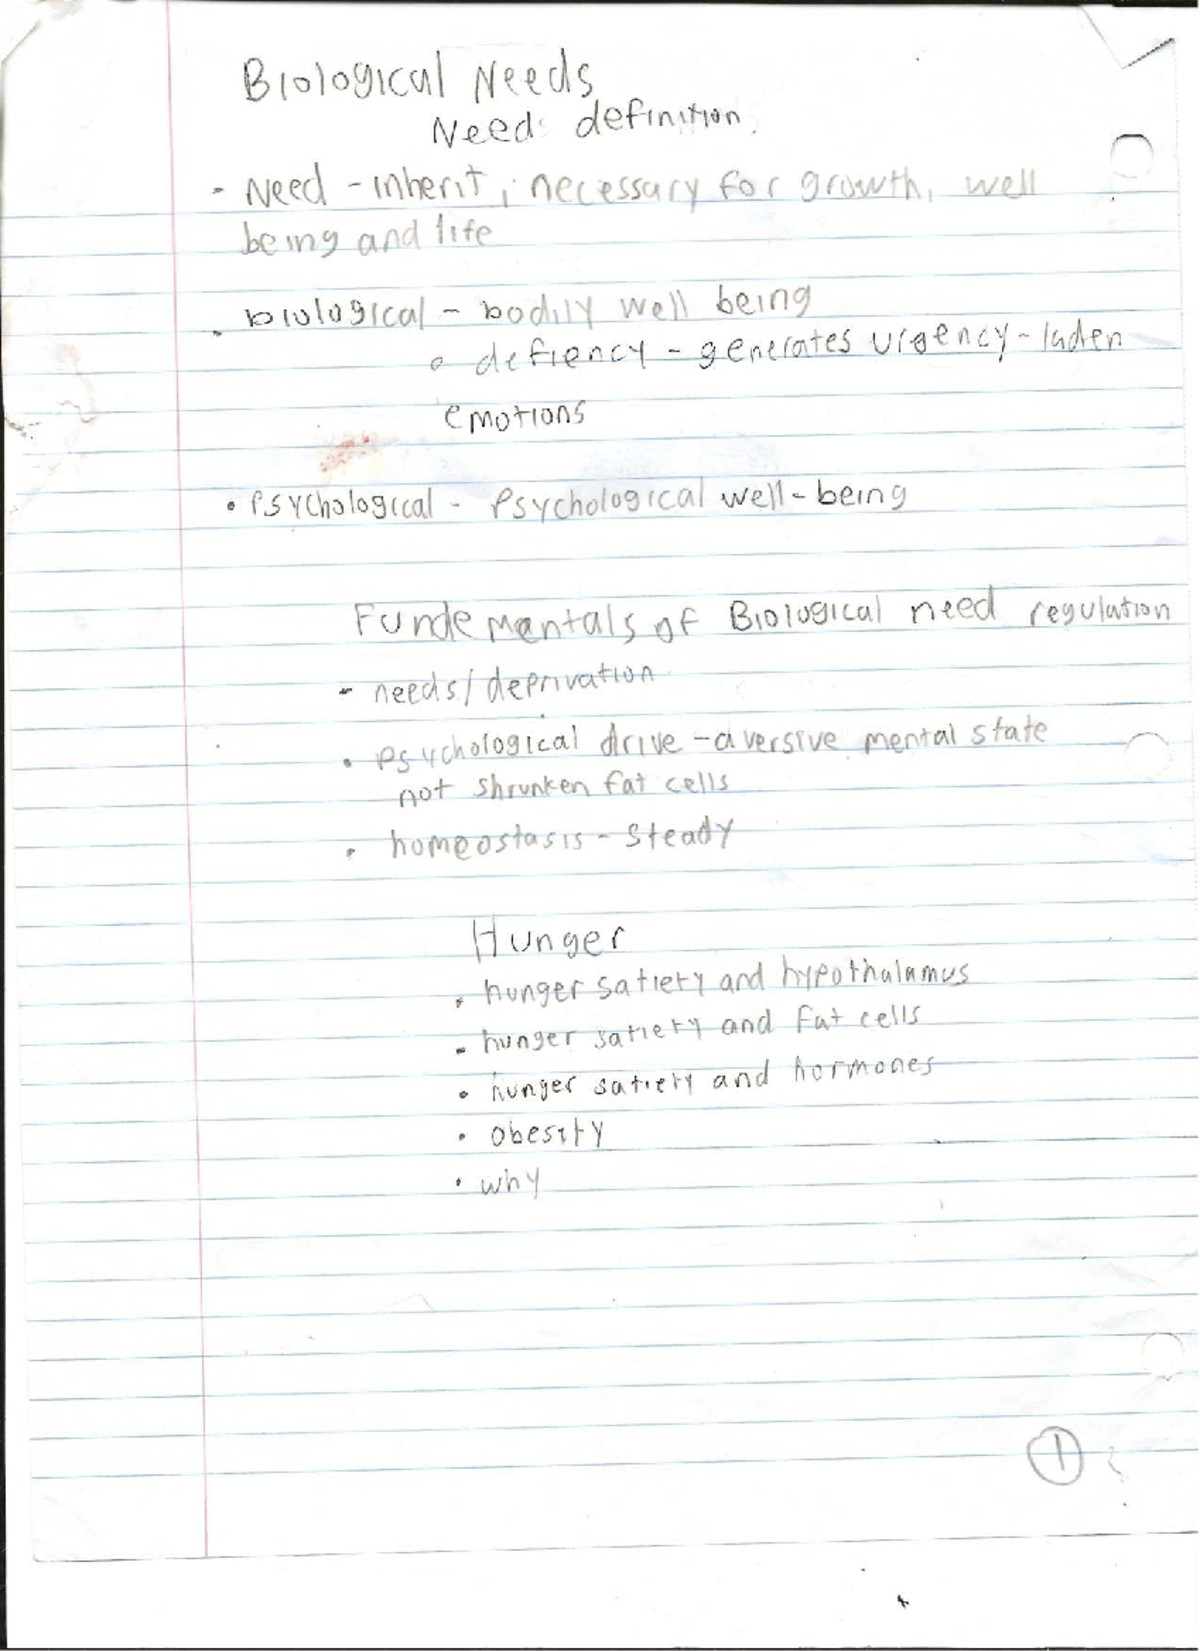 Biological Needs
Need definition
- Need - inherit, necessary for growth, well
being and life
. biological - bodily well being
o defiency - generates urgency-laden
emotions
• Psychological - Psychological well-being
Fundementals of Biological need regulation
- needs/deprivation
• psychological drive - aversive mental state
not shrunken fat cells
• homeostasis - steady
Hunger
• hunger satiety and hypothalamus
- hunger satiety and fat cells
• hunger satiety and hormones
• obesity
• why
1